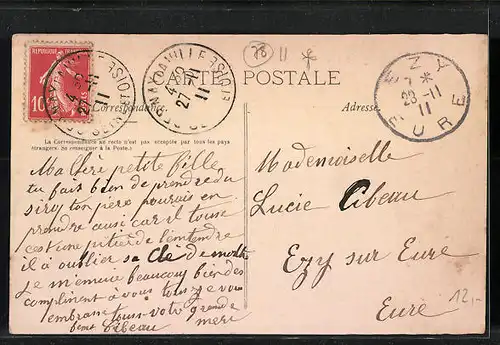 REPUBLIQUE FRANÇAISE
10
CARTE POSTALE
Correspondance
Adresse
La Correspondance au recto n'est pas acceptée par tous les pays
étrangers, (se renseigner à la Poste.)
EZY
EURE
23 - 11
11
4 35
27 - 11
11
4 35
27 - 11
11
78 11 *
Ma chère petite fille
tu fait bien de prendre du
sirop ton père pourais en
prendre ausi car il touse
c'est une pitier de l'entendre
il à oublier sa clé de montre
je m'ennuie beaucoup bien des
compliment à vous tous je vous
embrase tous votre grande
mère
Cibeau
Mademoiselle
Lucie Cibeau
Ezy sur Eure
Eure
12,-